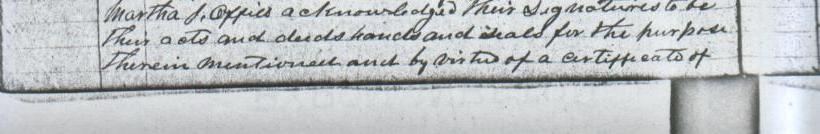 Martha J. Offill acknowledged their signatures to be
their acts and deeds hands and seals for the purpose
therein mentioned and by virtue of a certificate of